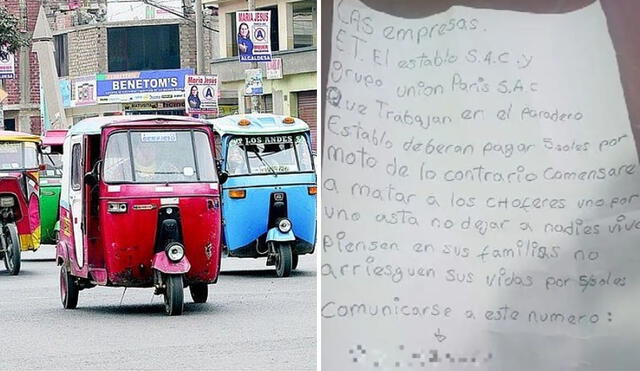 MARIA JESUS
ALCALDESA
MARIA JESUS
BENETOM'S
LOS ANDES
LAS empresas.
ET. El establo S.A.C. y
grupo union Paris SAC
Que Trabajan en el paradero
Establo deberan pagar 5soles por
moto de lo contrario Comensare
a matar a los CHoferes uno por
uno asta no dejar a nadies vivo
piensen en sus familias no
arriesguen sus vidas por 5/soles
Comunicarse a este numero: